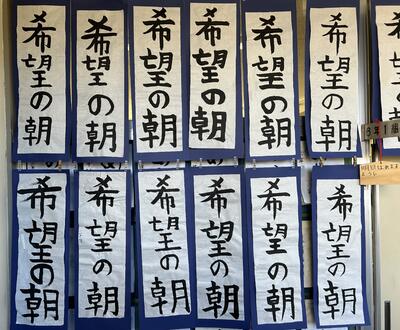 希望の朝
希望の朝
希望の朝
希望の朝
希望の朝
希望の朝
希望の朝
希望の朝
希望の朝
希望の朝
希望の朝
希望の朝